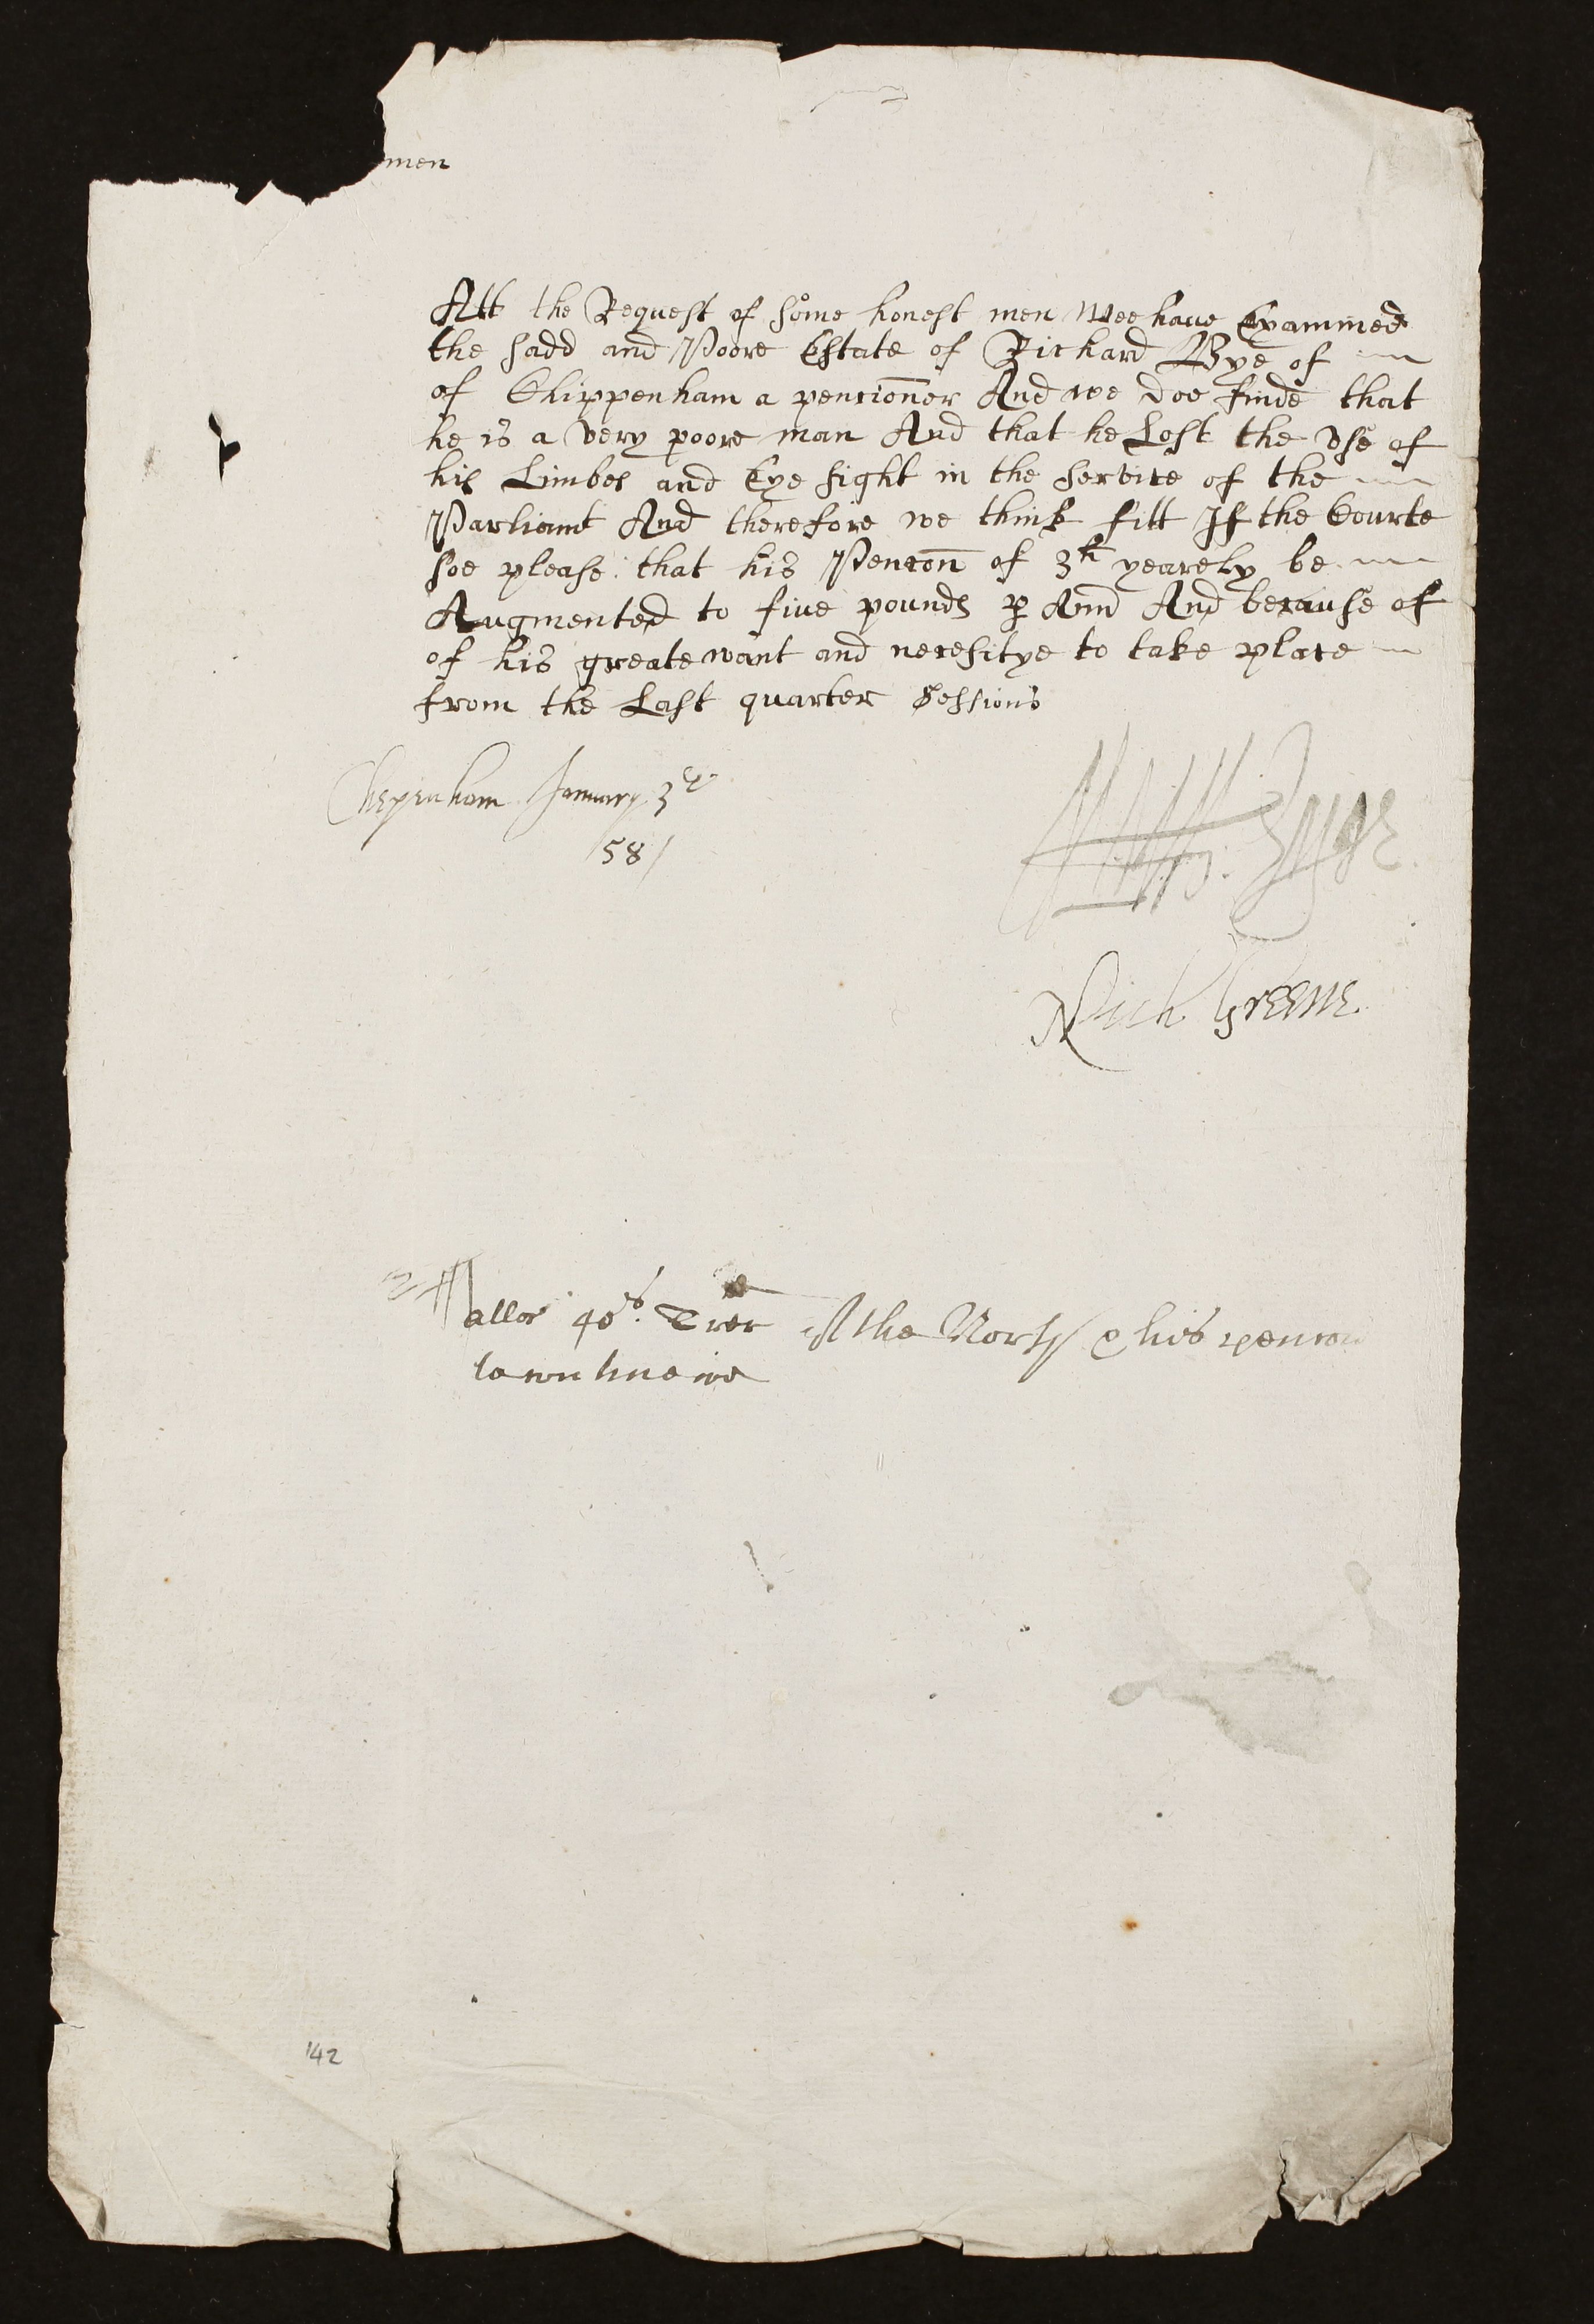 men
Att the Request of some honest men Wee haue Examined
the sadd and Poore Estate of Richard Bye of
of Chippenham a pencion̄er And we doe finde that
he is a very poore man And that he Lost the vse of
his Limbes and Eye sight in the service of the
Parliamt And therefore we think fitt If the Courte
soe please that his Pencon̄ of 3li yearely be
Augmented to fiue pounds p Ann And because of
of his greate want and necesitye to take place
from the Last quarter Sessions
Chepenham January 3d
58
Nich Greene
allow 40s. Trer the North his pencon
142